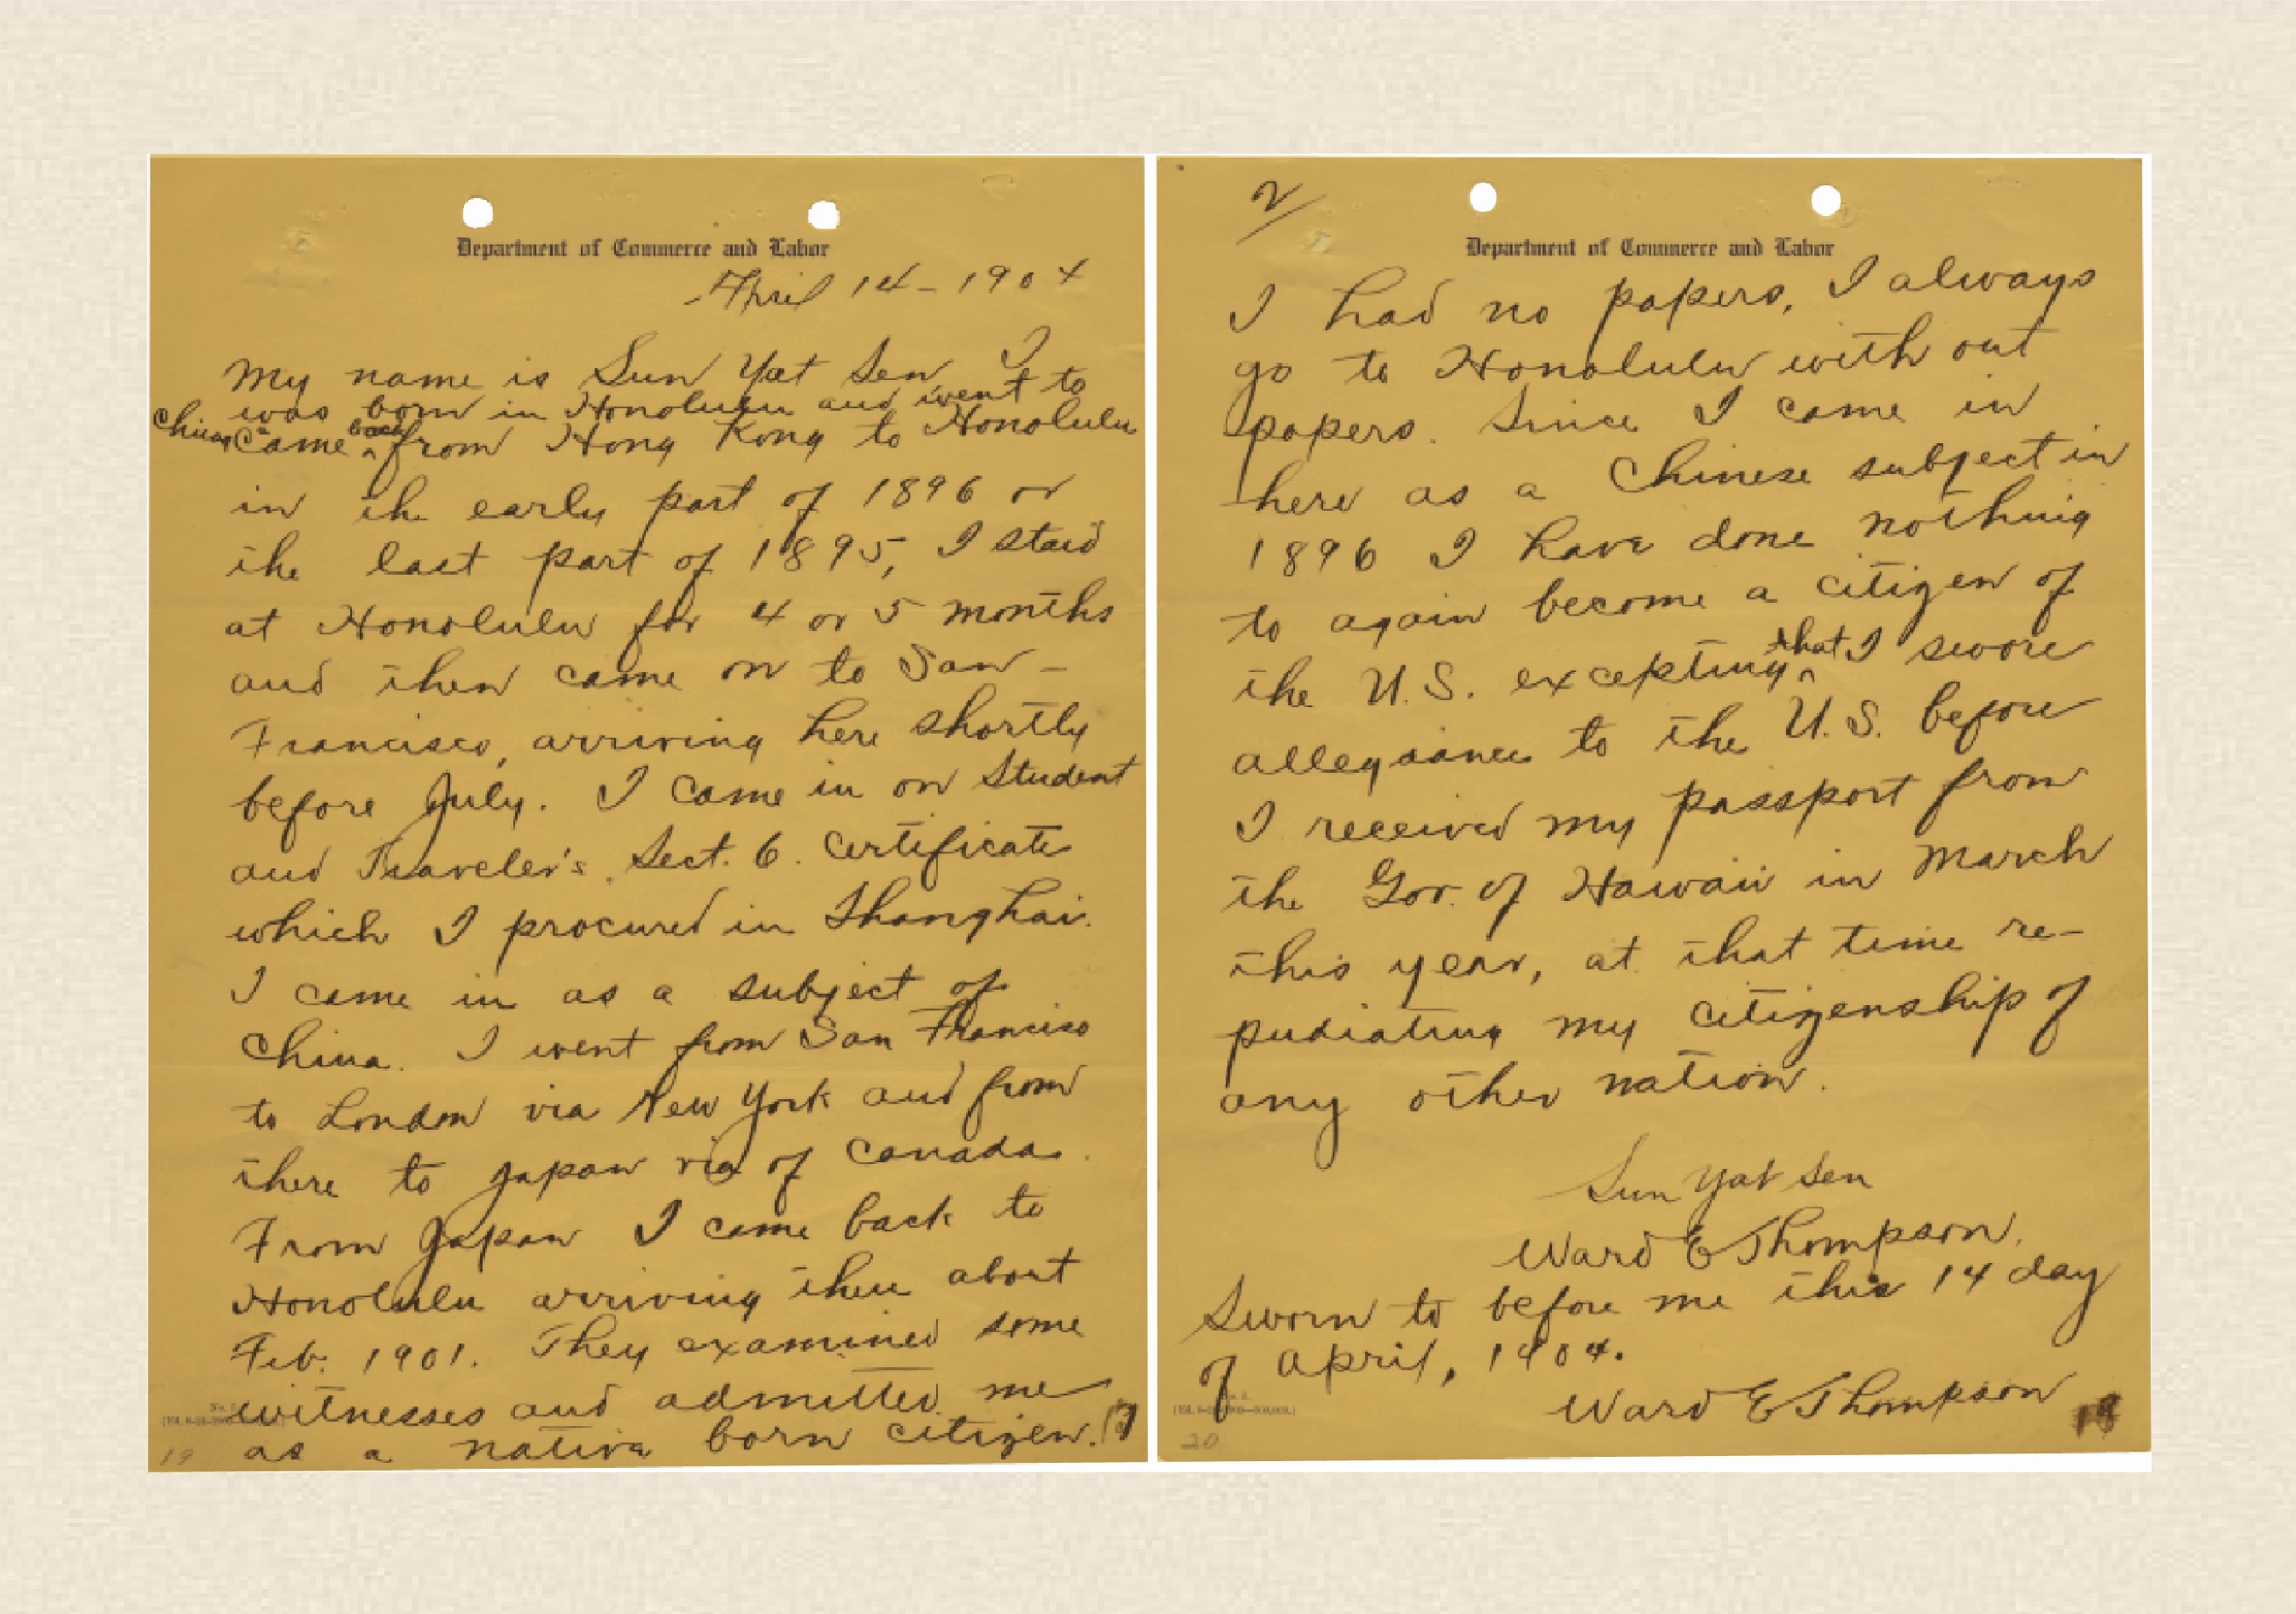 Department of Commerce and Labor
April 14 - 1904
My name is Sun Yat Sen I
was born in Honolulu and went to
China came back from Hong Kong to Honolulu
in the early part of 1896 or
the last part of 1895, I staid
at Honolulu for 4 or 5 months
and then came on to San -
Francisco, arriving here shortly
before July. I came in on Student
and Traveler's. Sect. 6. Certificate
which I procured in Shanghai.
I came in as a subject of
China. I went from San Francisco
to London via New York and from
there to Japan via of Canada.
From Japan I came back to
Honolulu arriving there about
Feb. 1901. They examined some
witnesses and admitted me
as a native born citizen.
19
2/
Department of Commerce and Labor
I had no papers, I always
go to Honolulu with out
papers. Since I came in
here as a Chinese subject in
1896 I have done nothing
to again become a citizen of
the U.S. excepting that I swore
allegiance to the U.S. before
I received my passport from
the Gov. of Hawaii in March
this year, at that time re-
pudiating my citizenship of
any other nation.
Sun Yat Sen
Ward E Thompson.
Sworn to before me this 14 day
of April, 1904.
Ward E Thompson
18
20